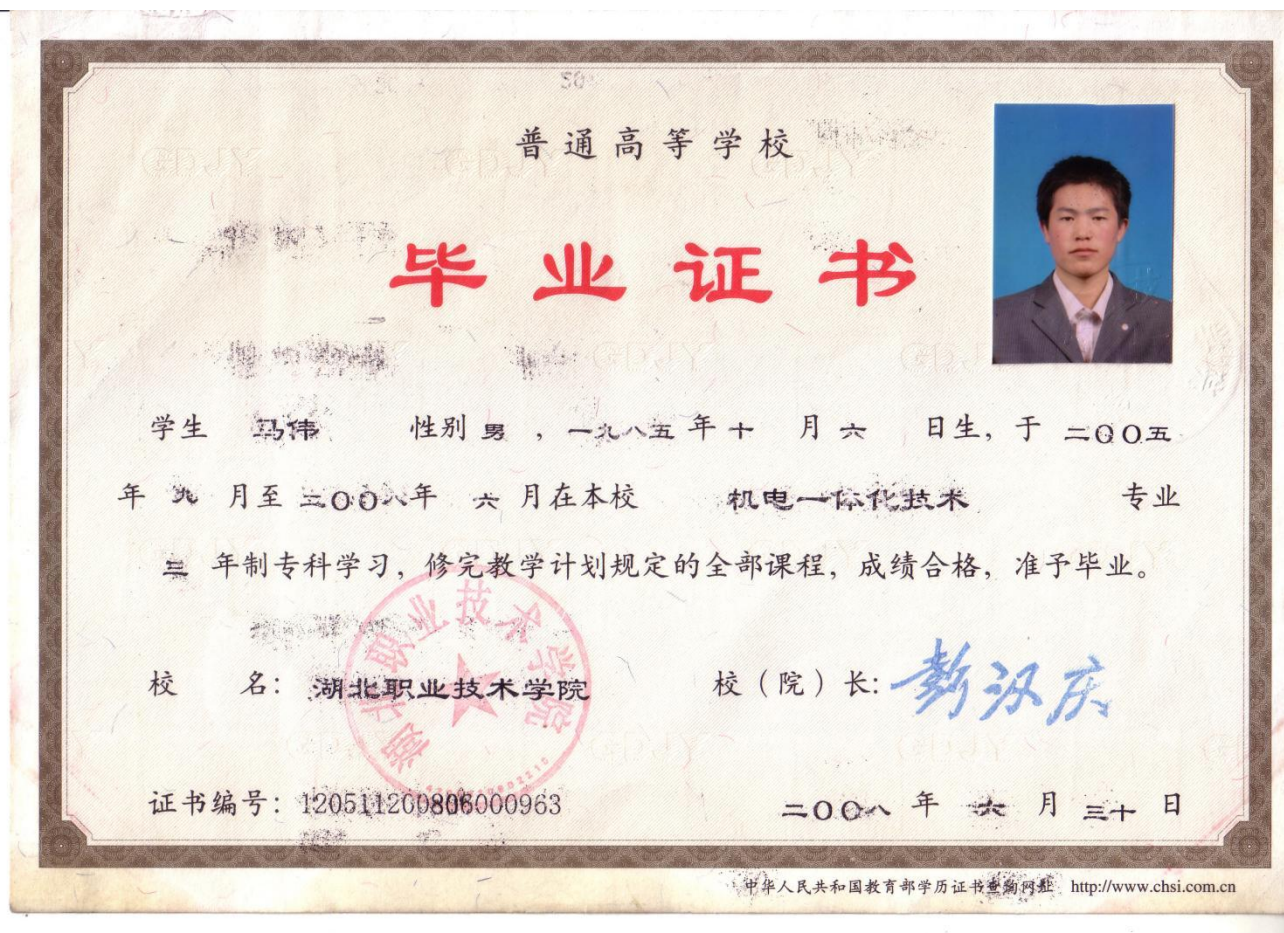 普通高等学校
毕业证书
学生 马伟 性别 男 ，一九八五 年 十 月 六 日生，于 二〇〇五
年 九 月至 二〇〇八年 六 月在本校 机电一体化技术 专业
三 年制专科学习，修完教学计划规定的全部课程，成绩合格，准予毕业。
湖北职业技术学院
校 名：湖北职业技术学院 校（院）长：彭汉庆
证书编号：120511200806000963 二〇〇八 年 六 月 三十 日
中华人民共和国教育部学历证书查询网址 http://www.chsi.com.cn